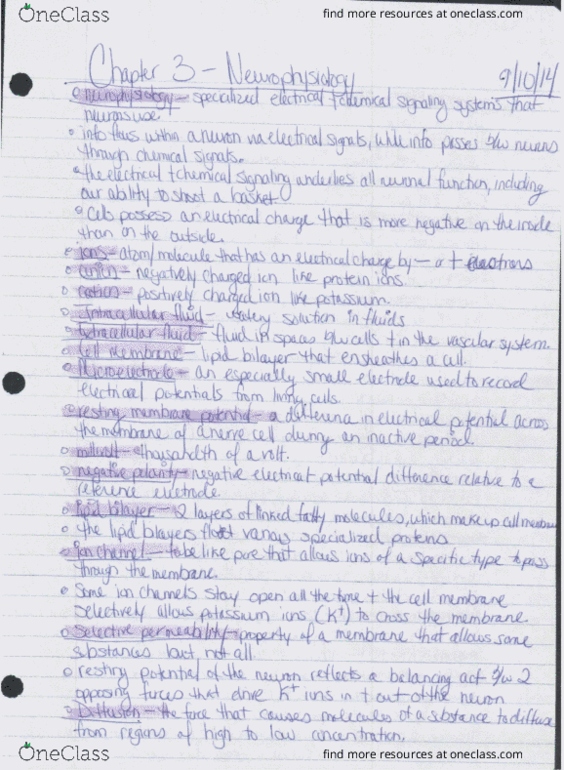 OneClass
find more resources at oneclass.com
Chapter 3 - Neurophysiology 9/10/14
neurophysiology - specialized electrical + chemical signaling systems that
neurons use
info flows within a neuron via electrical signals, while info passes b/w neurons
through chemical signals.
the electrical + chemical signaling underlies all neuronal function, including
our ability to shoot a basket
Cells possess an electrical charge that is more negative on the inside
than on the outside.
ions - atom/molecule that has an electrical charge by - or + electrons
anion - negatively charged ion like protein ions.
cation - positively charged ion like potassium.
Intracellular fluid - watery solution in fluids
Extracellular fluid - fluid in spaces b/w cells + in the vascular system.
Cell membrane - lipid bilayer that ensheathes a cell.
Microelectrode - an especially small electrode used to record
electrical potentials from living cells.
resting membrane potential - a difference in electrical potential across
the membrane of a nerve cell during an inactive period.
millivolt - thousandth of a volt.
negative polarity - negative electrical potential difference relative to a
reference electrode.
lipid bilayer - 2 layers of linked fatty molecules, which make up cell membrane
the lipid bilayers float various specialized proteins
Ion channel - tube like pore that allows ions of a specific type to pass
through the membrane.
Some ion channels stay open all the time + the cell membrane
selectively allows potassium ions (K+) to cross the membrane.
Selective permeability - property of a membrane that allows some
substances but not all.
resting potential of the neuron reflects a balancing act b/w 2
opposing forces that drive K+ ions in + out of the neuron
Diffusion - the force that causes molecules of a substance to diffuse
from regions of high to low concentration.
OneClass
find more resources at oneclass.com